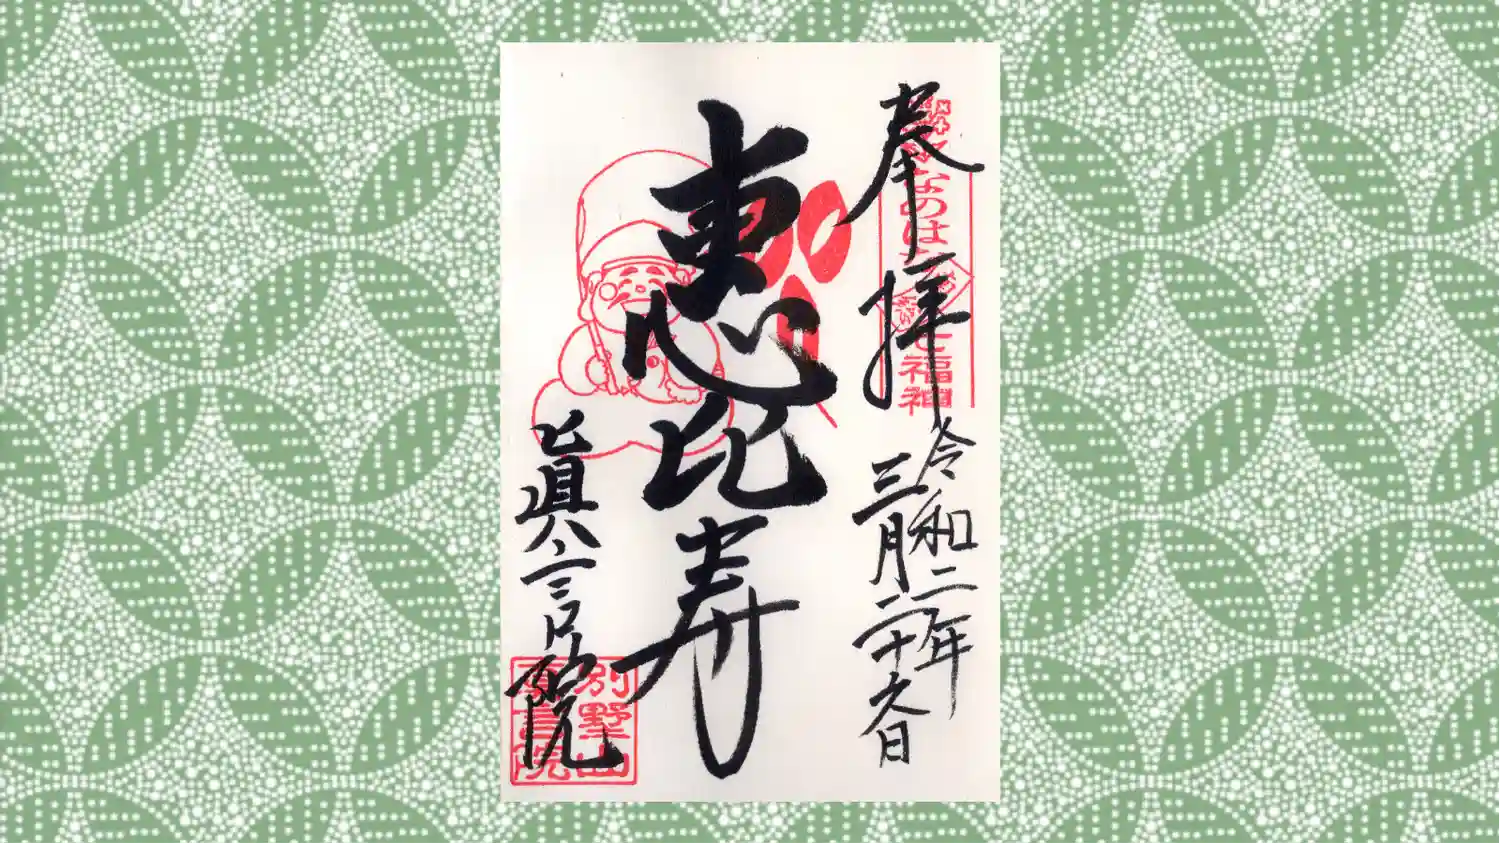 奉拝
なのは
七福神
令和二年
三月二十六日
恵比寿
眞言院
別野山
眞言院